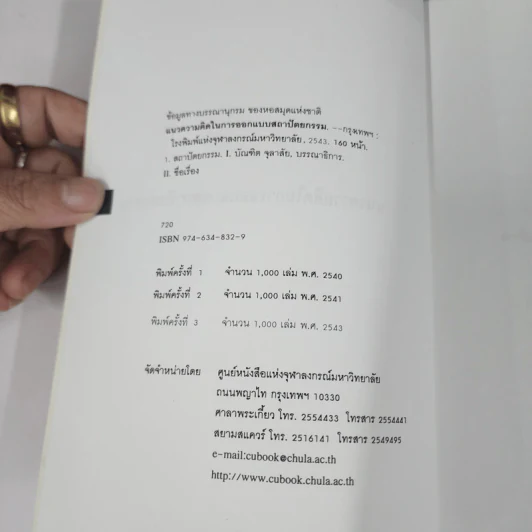 ข้อมูลทางบรรณานุกรม ของหอสมุดแห่งชาติ
แนวความคิดในการออกแบบสถาปัตยกรรม. --กรุงเทพฯ :
โรงพิมพ์แห่งจุฬาลงกรณ์มหาวิทยาลัย, 2543. 160 หน้า.
1. สถาปัตยกรรม. I. บัณฑิต จุลาสัย, บรรณาธิการ.
II. ชื่อเรื่อง
720
ISBN 974-634-832-9
พิมพ์ครั้งที่ 1 จำนวน 1,000 เล่ม พ.ศ. 2540
พิมพ์ครั้งที่ 2 จำนวน 1,000 เล่ม พ.ศ. 2541
พิมพ์ครั้งที่ 3 จำนวน 1,000 เล่ม พ.ศ. 2543
จัดจำหน่ายโดย ศูนย์หนังสือแห่งจุฬาลงกรณ์มหาวิทยาลัย
ถนนพญาไท กรุงเทพฯ 10330
ศาลาพระเกี้ยว โทร. 2554433 โทรสาร 2554441
สยามสแควร์ โทร. 2516141 โทรสาร 2549495
e-mail:cubook@chula.ac.th
http://www.cubook.chula.ac.th